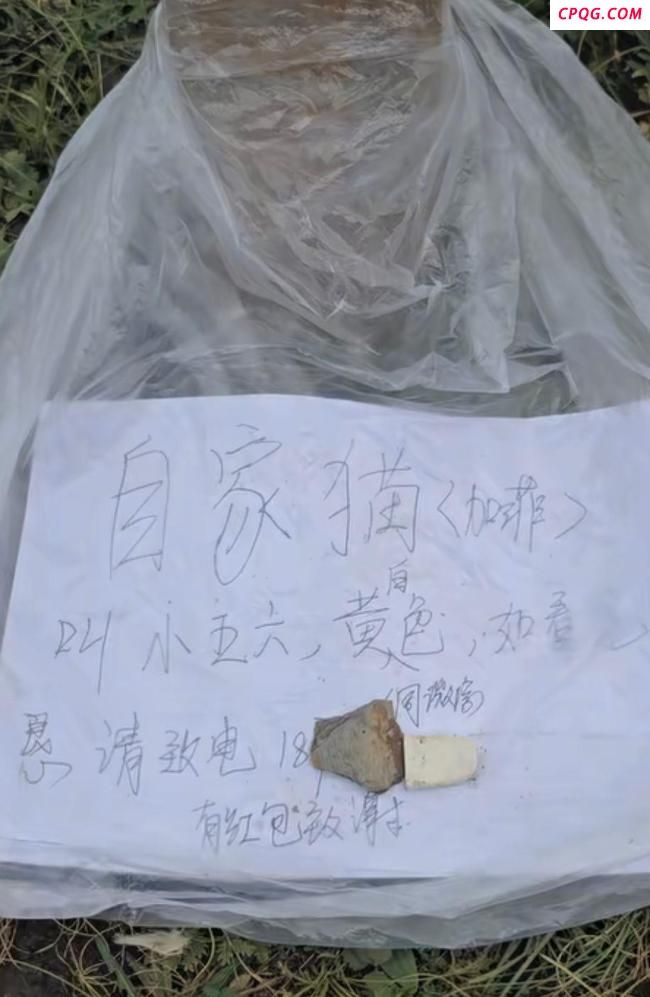 CPQG.COM
自家猫〈加菲〉
叫小王六,黄白色,如看见
恳请致电18
同微信
有红包致谢!